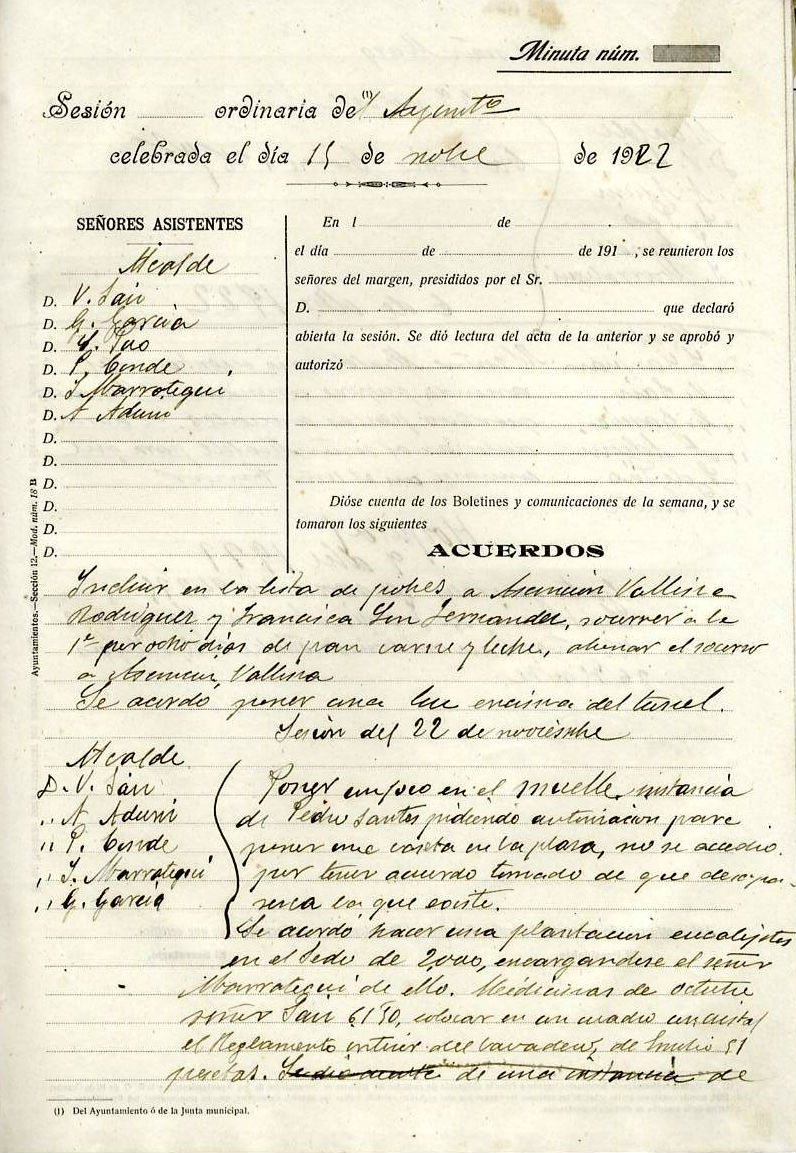 Minuta núm.
Sesión ordinaria del (1) Ayunto
celebrada el día 15 de nobe de 1922
SEÑORES ASISTENTES
Alcalde
D. V. San
D. G. García
D.
D. P. Conde
D. I. Marrotegui
D. A Aduni
D.
D.
D.
D.
D.
D.
En 1 de
el día de de 191 , se reunieron los
señores del margen, presididos por el Sr.
D. que declaró
abierta la sesión. Se dió lectura del acta de la anterior y se aprobó y
autorizó
Dióse cuenta de los Boletines y comunicaciones de la semana, y se
tomaron los siguientes
ACUERDOS
Incluir en la lista de pobres, a Asención Vallina
Rodriguez y Francisca Fernandez, socorrer a la
1ª por ocho dias de pan carne y leche, abonar el socorro
a Asención Vallina
Se acordó poner una luz encima del tunel.
Sesión del 22 de noviembre
Alcalde
D. V. San
,, A Aduni
,, P. Conde
,, I. Marrotegui
,, G. García
Poner un foco en el muelle, instancia
de Pedro Santos pidiendo autorizacion para
poner una caseta en la plaza, no se accedio
por tener acuerdo tomado de que desapa-
rezca la que existe.
Se acordó hacer una plantacion eucaliptos
en el Sedo de 2,000, encargandose el señor
Marrotegui de ello. Medicinas de octubre
señor San 61'50, colocar en un cuadro un cristal
el Reglamento interior del lavadero, de Emilio 51
pesetas. Se dió cuenta de una instancia de
(1) Del Ayuntamiento ó de la Junta municipal.
Ayuntamientos.—Sección 12.—Mod. núm. 18 B